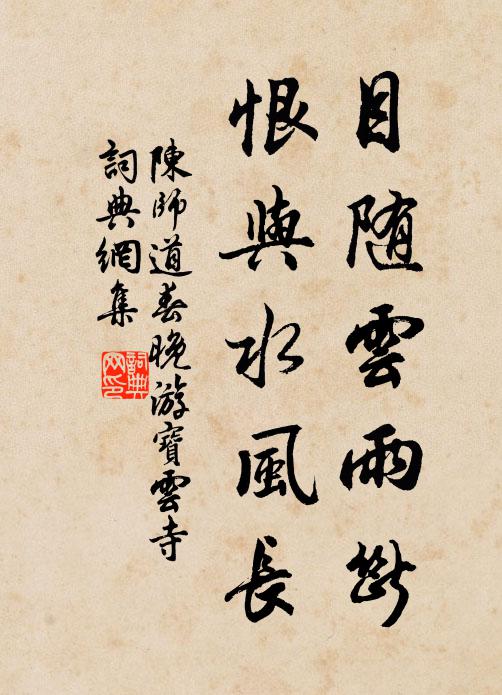 目随雲雨断
恨與水風長
陳師道春晚游寶雲寺
詞典網集
詞典网印